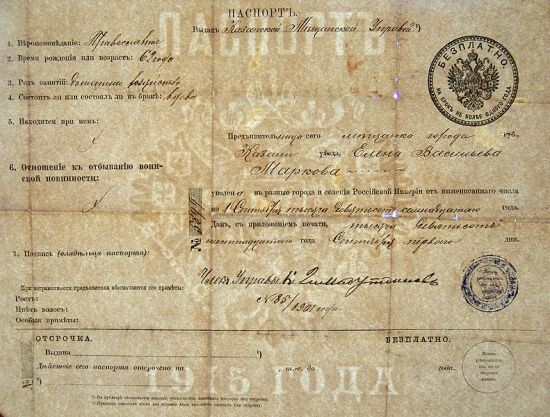 ПАСПОРТЪ.
Выданъ Казанской Мѣщанской Управой ¹)
1. Вѣроисповѣданіе: Православное
2. Время рожденія или возрастъ: 62 года
БЕЗПЛАТНО.
НА СРОКЪ НЕ БОЛѢЕ ОДНОГО ГОДА
3. Родъ занятій: Домашнее хозяйство
4. Состоитъ ли или состоялъ ли въ бракѣ: вдова
5. Находятся при немъ:
Предъявительница сего мѣщанка города губ.
Казани уѣзда, Елена Васильева
Маркова
6. Отношеніе къ отбыванію воинской повинности:
уволена въ разные города и селенія Россійской Имперіи отъ нижеписаннаго числа
по 1 Сентября тысяча девятьсотъ семнадцатаго года.
Данъ, съ приложеніемъ печати, тысяча девятьсотъ
шестнадцатаго года Сентября перваго дня.
7. Подпись (владѣльца паспорта):
Членъ Управы
При неграмотности предъявителя обозначаются его примѣты:
Ростъ:
Цвѣтъ волосъ:
Особыя примѣты:
ОТСРОЧКА. БЕЗПЛАТНО.
Выдана ¹)
Дѣйствіе сего паспорта отсрочено на ²) по до 19 года.
№
ПАСПОРТЪ
1915 ГОДА